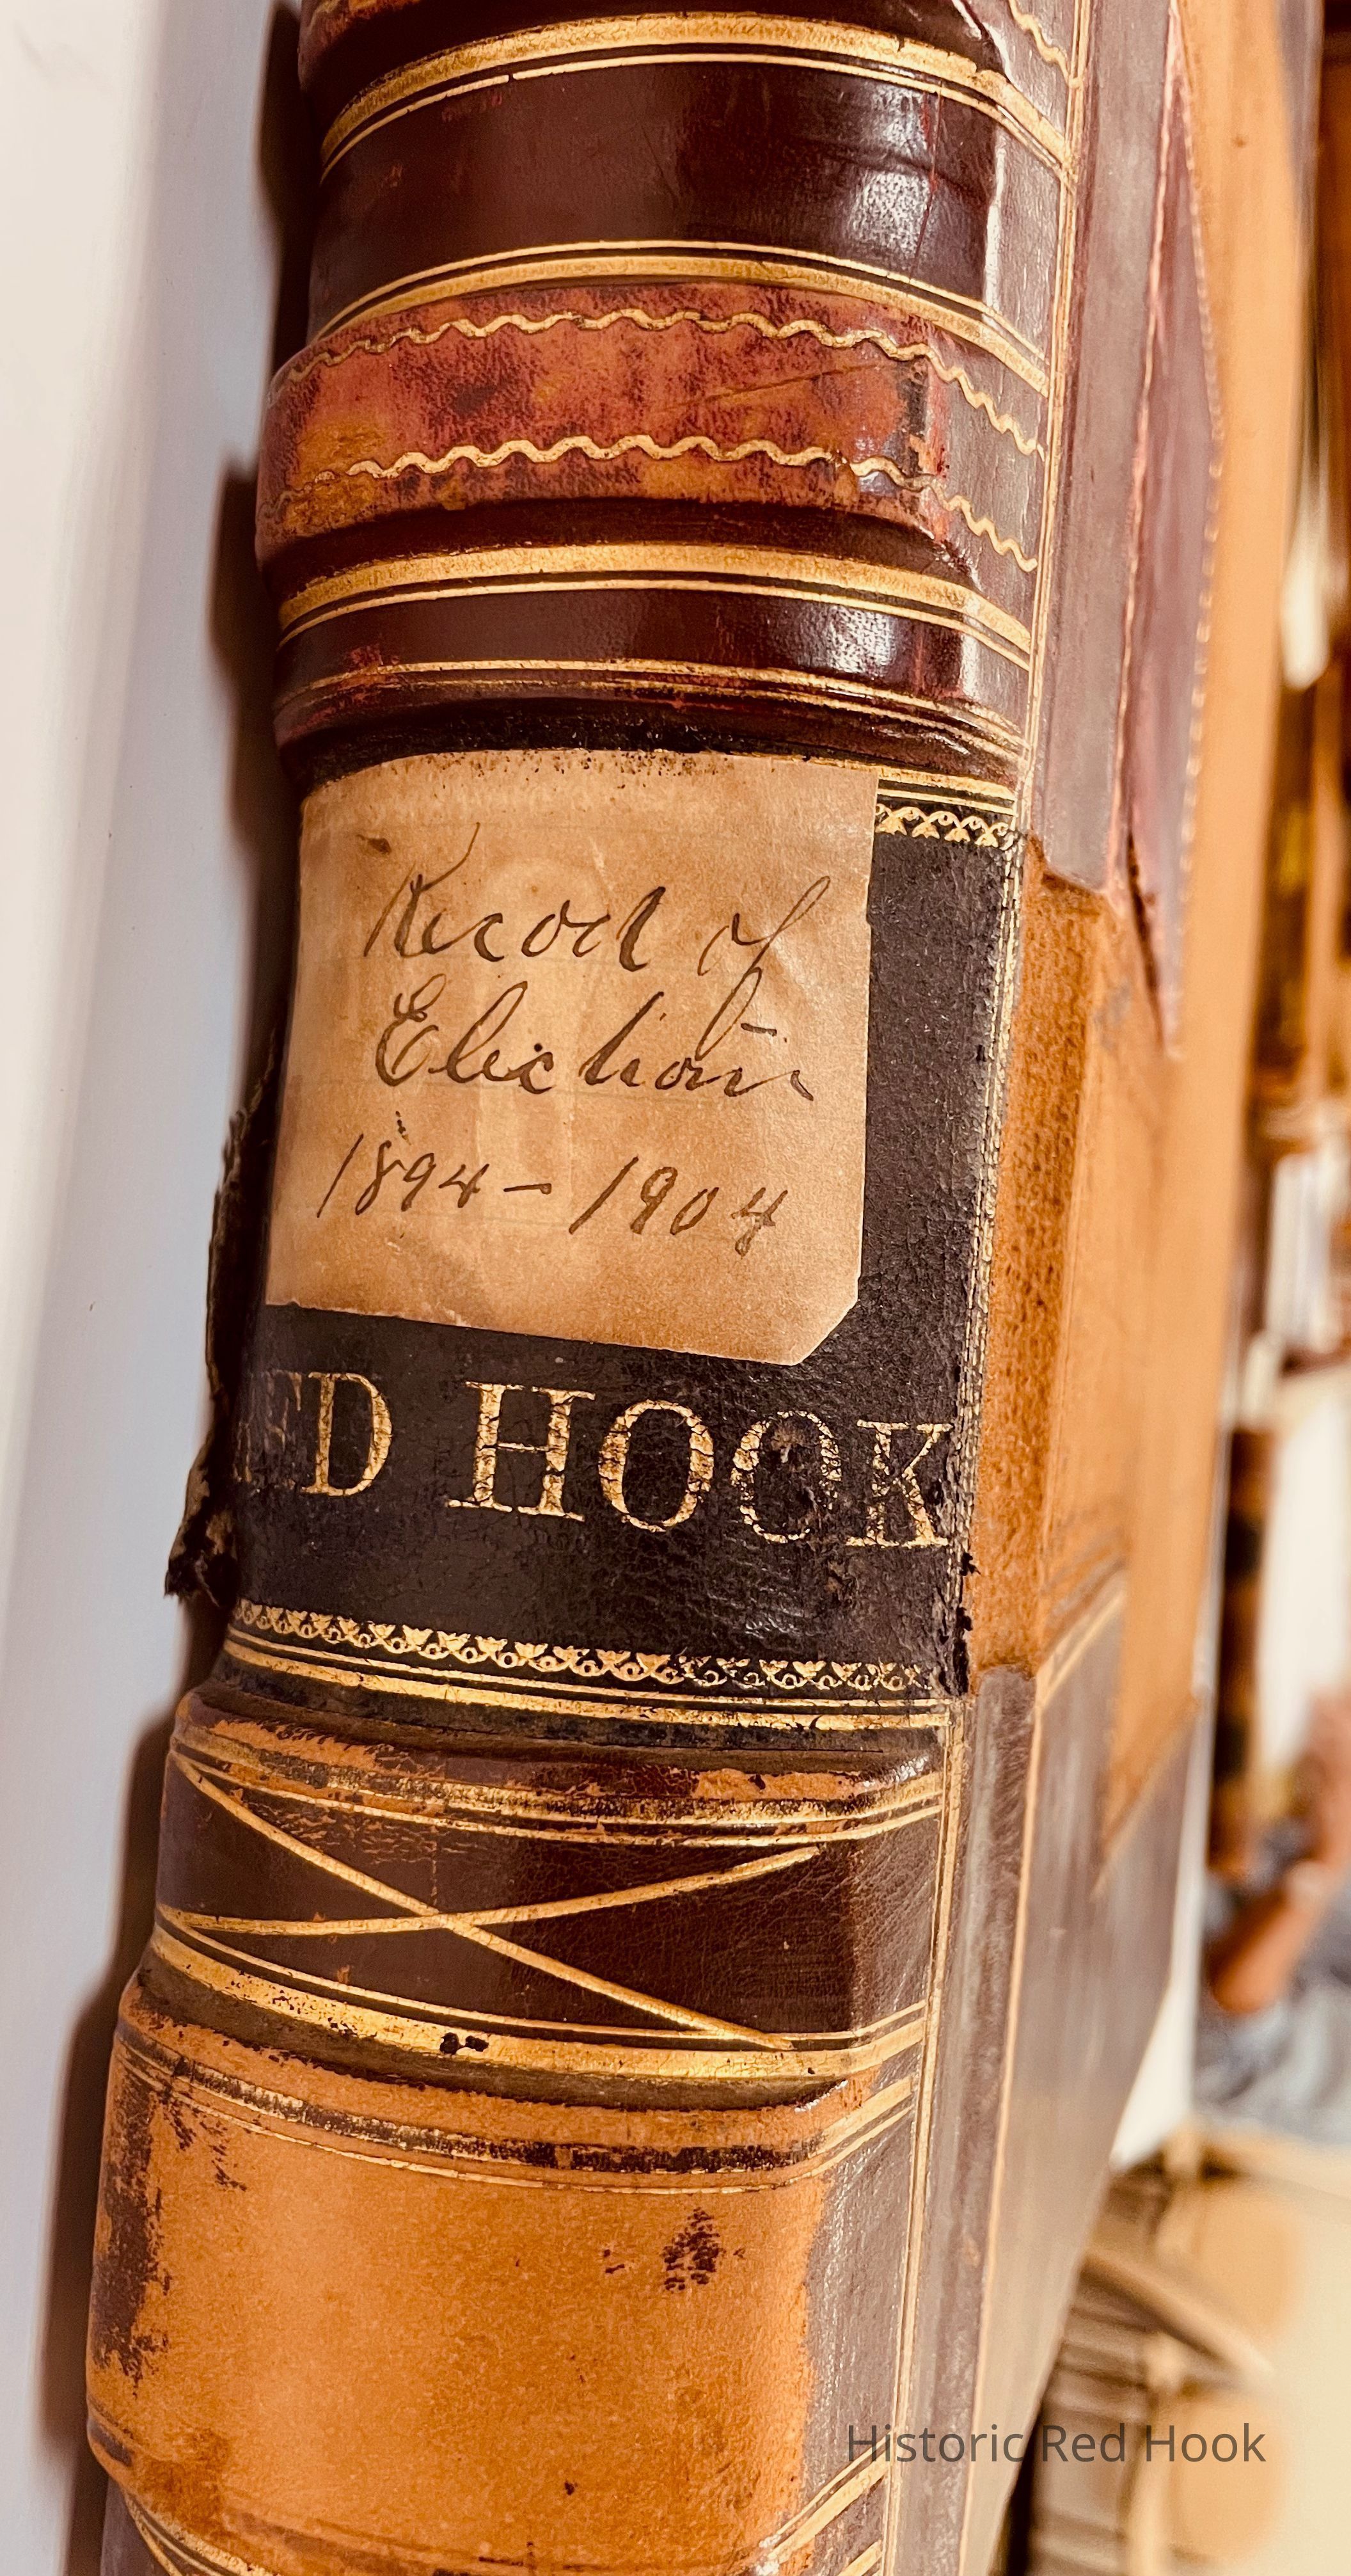 Record of
Election
1894 - 1904
RED HOOK
Historic Red Hook